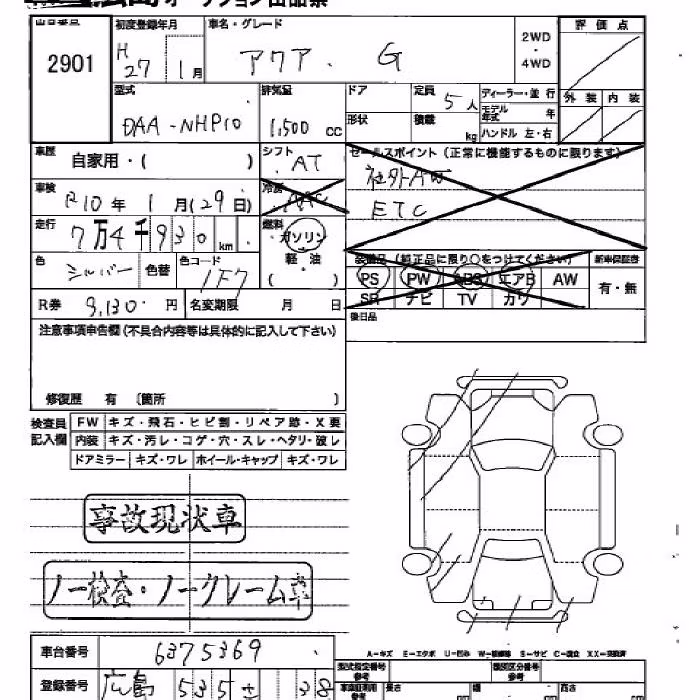 広島オークション出品票
出品番号 初度登録年月 車名・グレード 2WD・4WD 評価点
2901 H27 1月 アクア. G
型式 排気量 ドア 定員 5人 ディーラー・並行 外装 内装
DAA-NHP10 1,500 CC 形状 積載 kg モデル年式 年
ハンドル 左・右
車歴 自家用・( ) シフト AT セールスポイント(正常に機能するものに限ります)
車検 R10年 1月(29日) 冷房 AAC 社外AW
ETC
走行 7万4千930km 燃料 ガソリン
軽・油
( )
色 シルバー 色替 色コード 1F7
装備品(純正品に限り○をつけてください) 新車保証書
PS PW ABS エアB AW 有・無
SR ナビ TV カワ
R券 9,130 円 名変期限 月 日 後日品
注意事項申告欄(不具合内容等は具体的に記入して下さい)
修復歴 有 〔箇所 〕
検査員記入欄 FW キズ・飛石・ヒビ割・リペア跡・X要
内装 キズ・汚レ・コゲ・穴・スレ・ヘタリ・破レ
ドアミラー キズ・ワレ ホイール・キャップ キズ・ワレ
事故現状車
ノー検査・ノークレーム車
車台番号 6375369
登録番号 広島 535
A-キズ E-エクボ U-凹み S-サビ C-腐食
型式指定番号 参考 類別区分番号 参考
長さ cm 幅 cm 高さ cm